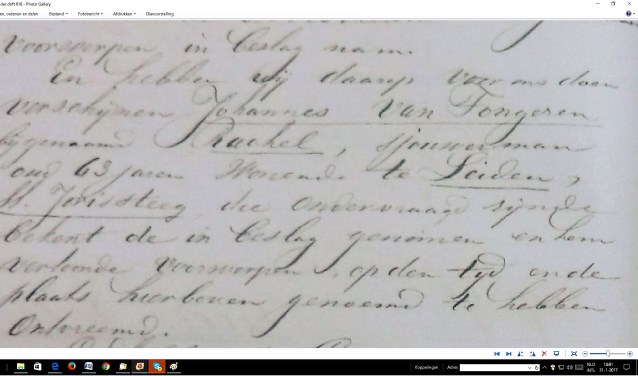 der drift 818 - Photo Gallery
en, ordenen en delen Bestand Fotobericht Afdrukken Diavoorstelling
voorwerpen in beslag nam.
En hebben wij daarop voor ons doen
verschijnen Johannes van Tongeren
bijgenaamd Rachel, sjouwerman
oud 63 jaren Wonende te Leiden,
St. Jorissteeg die ondervraagd zijnde
bekent de in beslag genomen en hem
vertoonde voorwerpen, op den tijd en de
plaats hierboven genoemd te hebben
Ontvreemd.
Koppelingen Adres NLD 18:01
INTL 31-1-2017